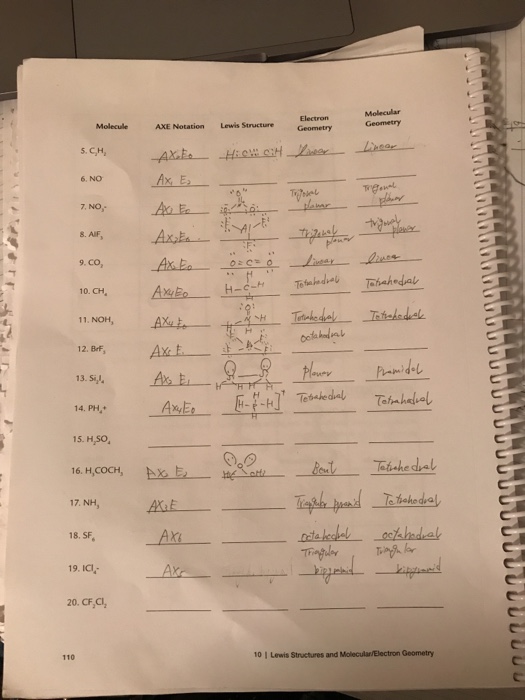 Molecule AXE Notation Lewis Structure Electron Geometry Molecular Geometry
5. C₂H₂ AX₂E₀ H:C:::C:H Linear Linear
6. NO AX₁ E₂
7. NO₃- AX₃ E₀ Trigonal planar Trigonal planar
8. AlF₃ AX₃E₀ Trigonal planar trigonal planar
9. CO₂ AX₂E₀ O=C=O linear linear
10. CH₄ AX₄E₀ H-C-H Tetrahedral Tetrahedral
11. NOH₃ AX₄E₀ Tetrahedral Tetrahedral
12. BrF₅ AX₅E octahedral
13. Si₂I₆ Planer Pramidol
14. PH₄+ AX₄E₀ [H-P-H]⁺ Tetrahedral Tetrahedral
15. H₂SO₄
16. H₃COCH₃ AX₂ E₂ Bent Tetrahedral
17. NH₃ AX₃E Tetrahedral
18. SF₆ AX₆ octahedral octahedral
19. ICl₄- Triangular bipyramid Triangular bipyramid
20. CF₂Cl₂
110 10 | Lewis Structures and Molecular/Electron Geometry